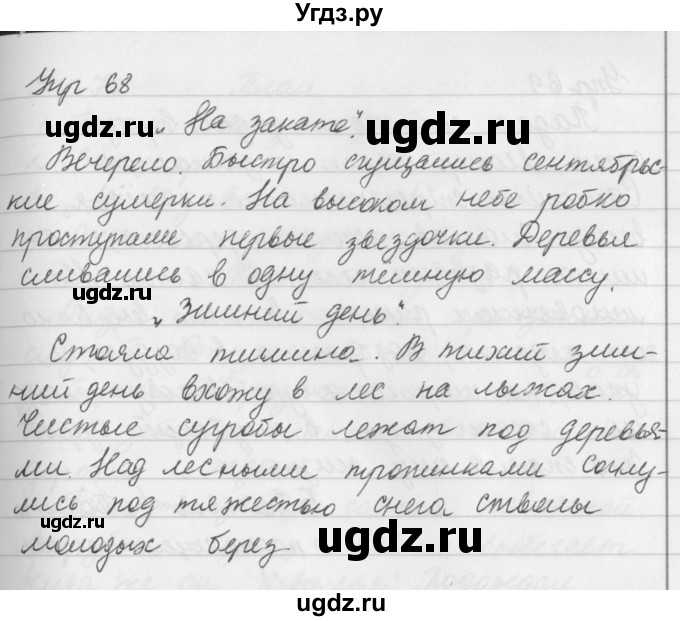 Угдз.ру
Упр 68
ugdz.ru
„На закате".
ugdz.ru
Вечерело. Быстро сгущались сентябрьс-
кие сумерки. На высоком небе робко
проступали первые звездочки. Деревья
сливались в одну темную массу.
ugdz.ru
„Зимний день".
Стояла тишина. В тихий зим-
ний день вхожу в лес на лыжах.
Чистые сугробы лежат под деревья-
ми. Над лесными тропинками согну-
лись под тяжестью снега стволы
ugdz.ru
молодых берез
ugdz.ru
ugdz.ru